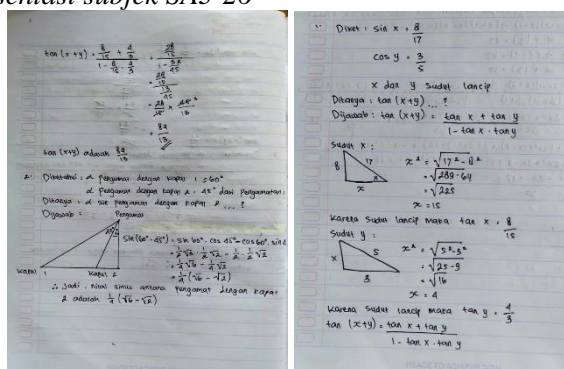 subjek SA3-20
tan (x+y) = 8/15 + 4/3 / 1 - 8/15 · 4/3 = 28/15 / 1 - 32/45
= 28/15 / 13/45
= 28/15 × 45/13
= 84/13
tan (x+y) adalah 84/13
2. Diketahui : α pengamat dengan kapal 1 = 60°
α pengamat dengan kapal 2 = 45° dari pengamatan
Ditanya : α sin pengamat dengan kapal 2 ... ?
Dijawab :
Pengamat
Sin (60° - 45°) = sin 60° . cos 45° - cos 60° . sin
= 1/2 √3 . 1/2 √2 - 1/2 . 1/2 √2
= 1/4 √6 - 1/4 √2
= 1/4 (√6 - √2)
Kapal 1
Kapal 2
∴ Jadi, nilai sinus antara pengamat dengan kapal
2 adalah 1/4 (√6 - √2)
1. Diket : sin x = 8/17
cos y = 3/5
x dan y sudut lancip
Ditanya : tan (x+y) ... ?
Dijawab : tan (x+y) = tan x + tan y / 1 - tan x . tan y
Sudut x :
8
17
x
x
x² = √17² - 8²
= √289 - 64
= √225
x = 15
Karena sudut lancip maka tan x = 8/15
Sudut y :
x
5
3
x² = √5² - 3²
= √25 - 9
= √16
x = 4
Karena sudut lancip maka tan y = 4/3
tan (x+y) = tan x + tan y / 1 - tan x . tan y